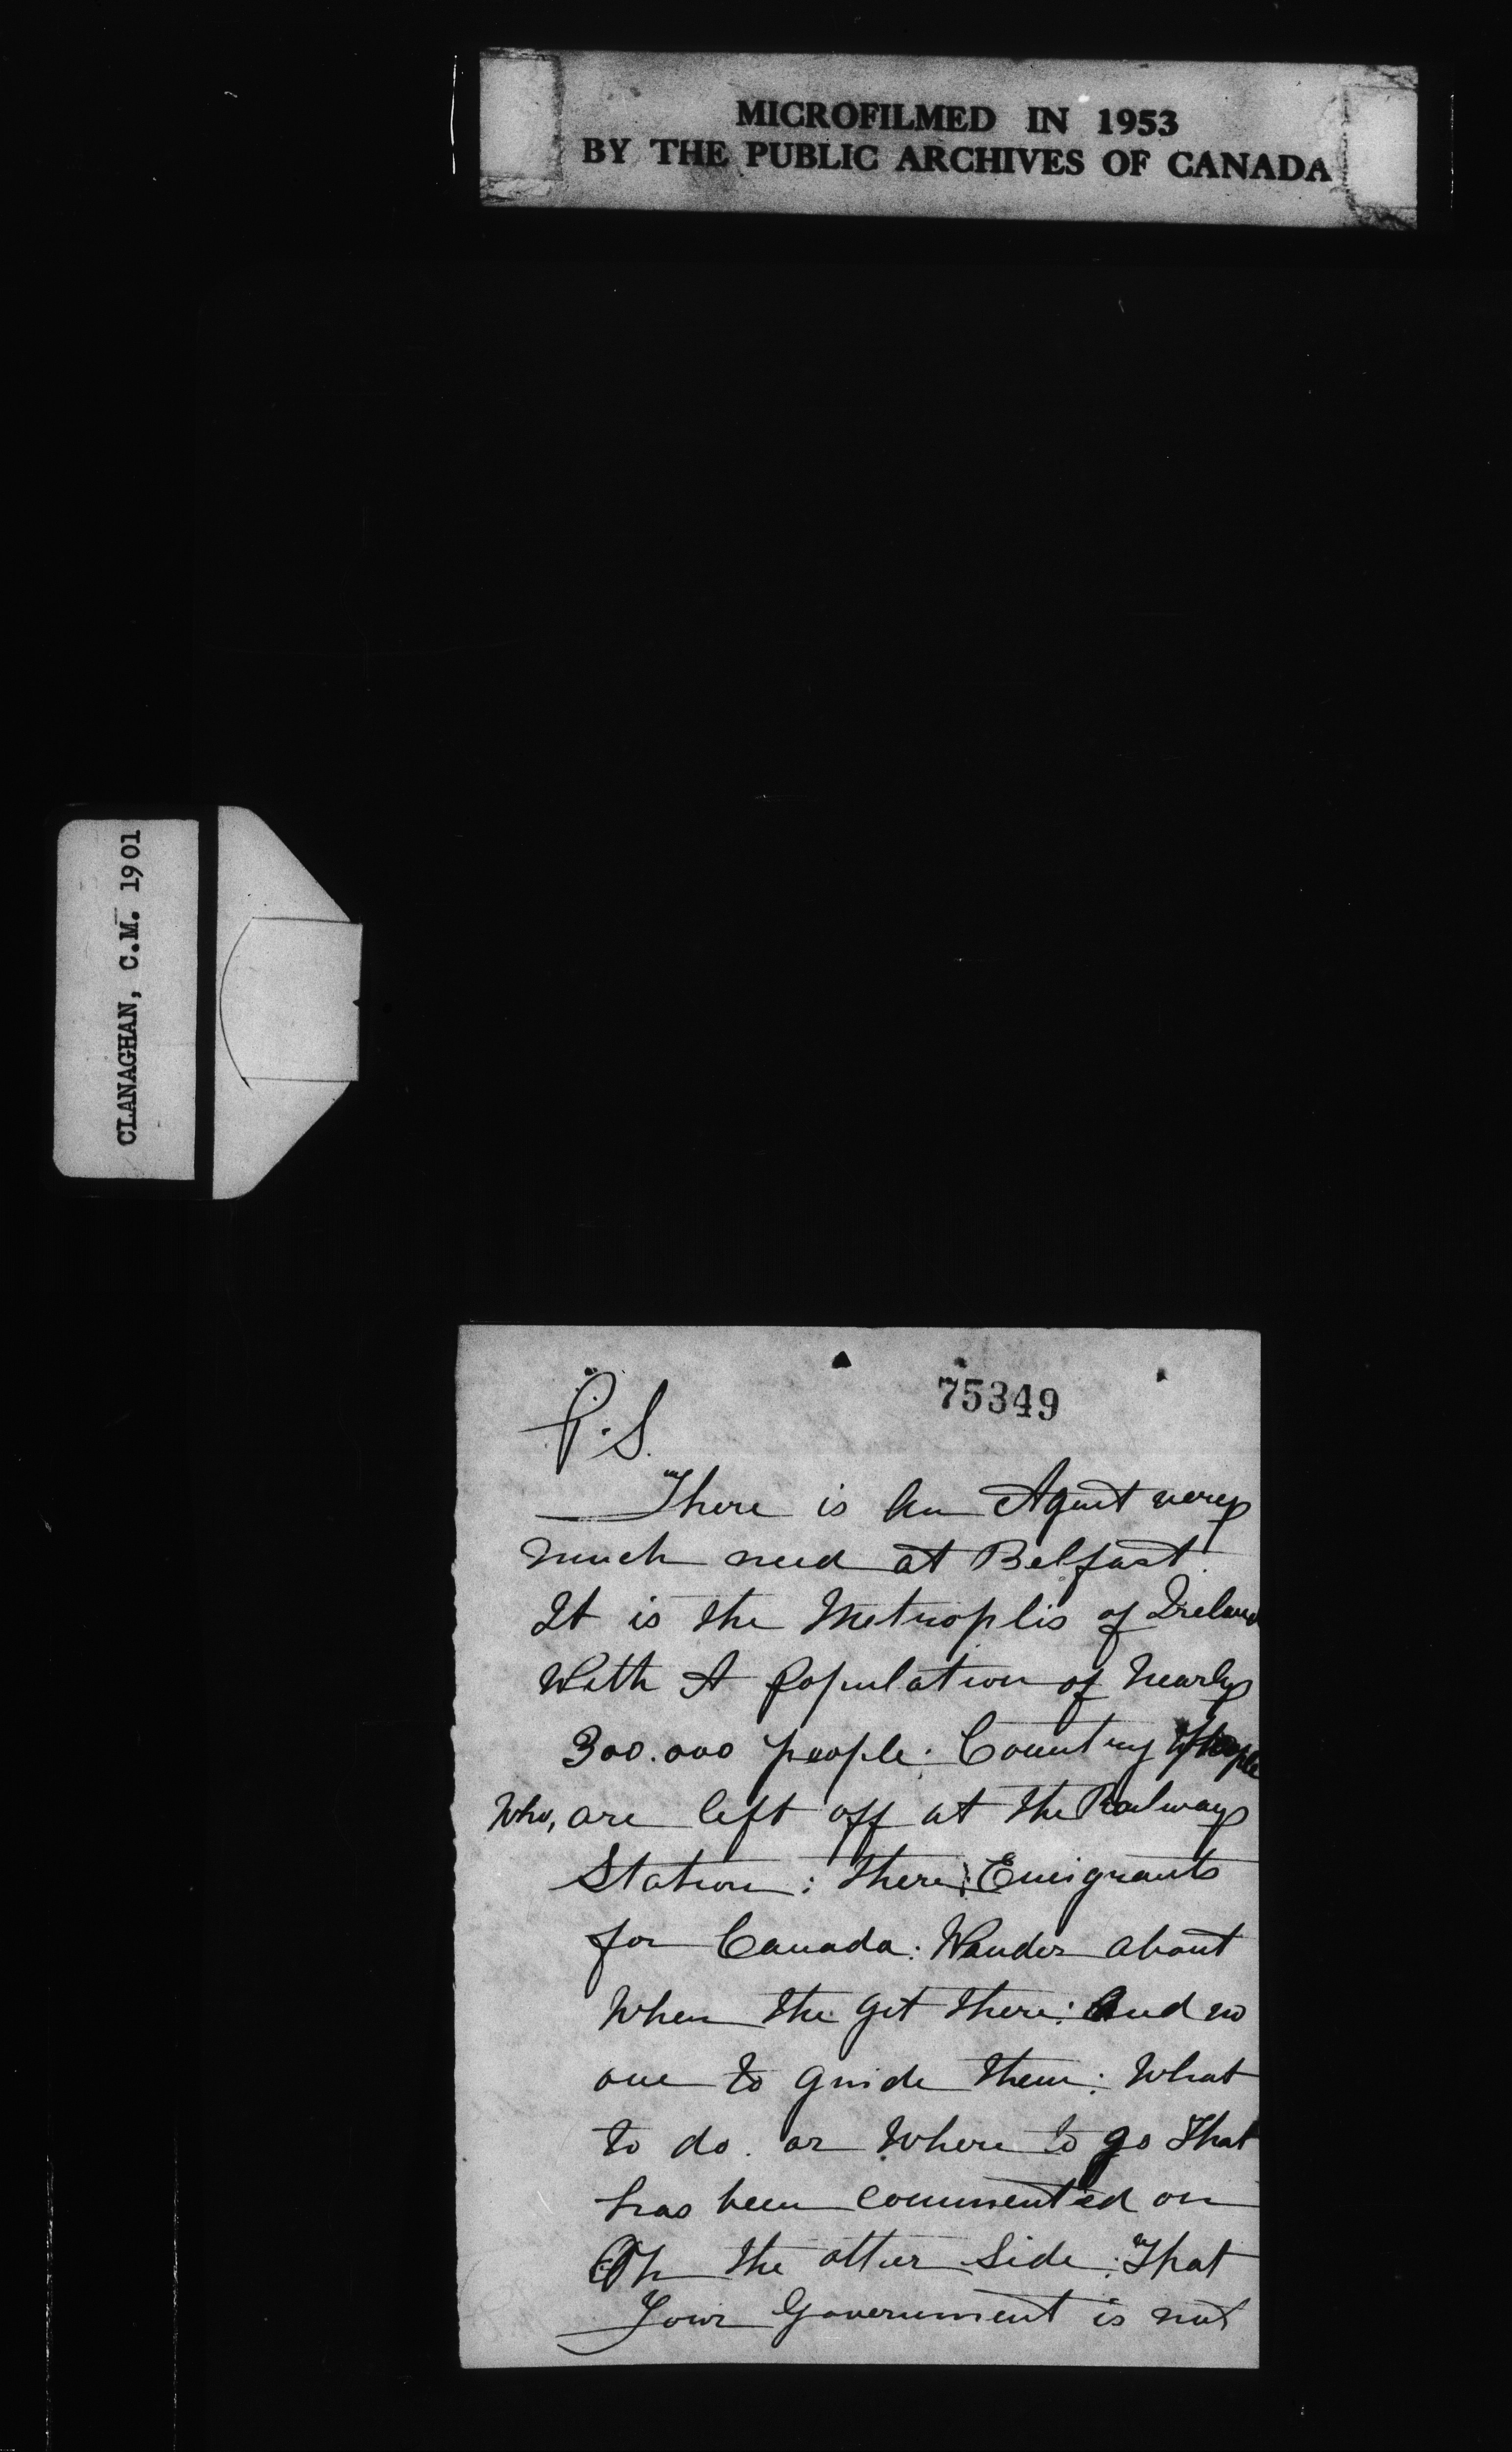 MICROFILMED IN 1953
BY THE PUBLIC ARCHIVES OF CANADA
CLANAGHAN, C.M. 1901
75349
P.S.
There is an Agent very
much need at Belfast.
It is the Metroplis of Ireland
With A population of Nearly
300.000 people. Country People
Who, are left off at the Railway
Station: there: Emigrants
for Canada: Wander about
When the get there: And no
one to guide them: What
to do. or Where to go That
has been commented on
On the other Side: That
Your Government is not